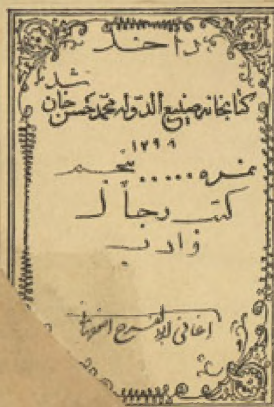 داخل
شد
کتابخانه صنیع الدوله محمد حسن خان
۱۲۹۸
نمره ...... پنجم
کتب رجال
و ادب
اغانی الاصفهانی